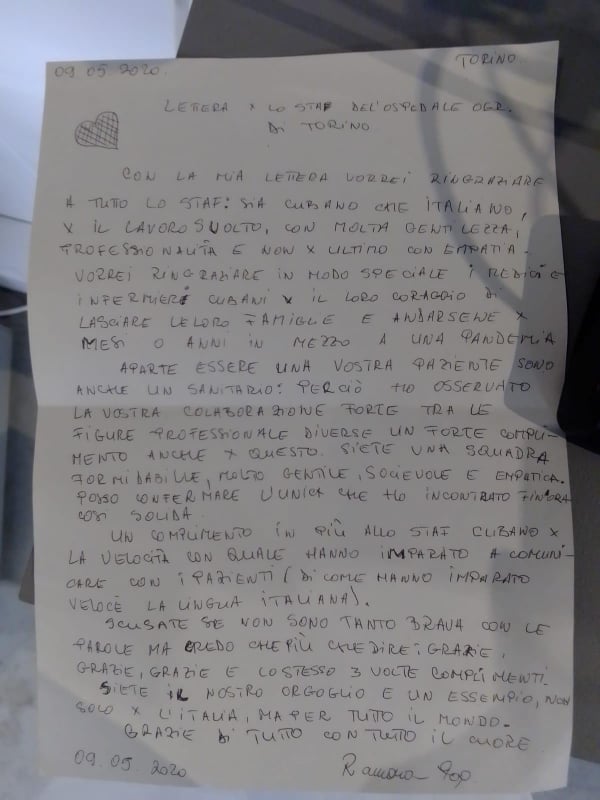 09.05.2020. TORINO.
LETTERA x LO STAF DEL'OSPEDALE OGR.
DI TORINO.
CON LA MIA LETTERA VORREI RINGRAZIARE
A TUTTO LO STAF: SIA CUBANO CHE ITALIANO,
x IL LAVORO SVOLTO, CON MOLTA GENTILEZZA,
PROFESSIONALITÀ E NON x ULTIMO CON EMPATIA.
VORREI RINGRAZIARE IN MODO SPECIALE I MEDICI E
INFERMIERI CUBANI x IL LORO CORAGGIO DI
LASCIARE LELORO FAMIGLIE E ANDARSENE x
MESI O ANNI IN MEZZO A UNA PANDEMIA
APARTE ESSERE UNA VOSTRA PAZIENTE SONO
ANCHE UN SANITARIO: PERCIÒ HO OSSERVATO
LA VOSTRA COLABORAZIONE FORTE TRA LE
FIGURE PROFESSIONALE DIVERSE UN FORTE COMPLI-
MENTO ANCHE x QUESTO. SIETE UNA SQUADRA
FORMIDABILLE, MOLTO GENTILE, SOCIEVOLE E EMPATICA.
POSSO CONFERMARE L'UNICA CHE HO INCONTRATO FINORA
COSI SOLIDA.
UN COMPLIMENTO IN PIÙ ALLO STAF CUBANO x
LA VELOCITÀ CON QUALE HANNO IMPARATO A COMUNI-
CARE CON I PAZIENTI (DI COME HANNO IMPARATO
VELOCE LA LINGUA ITALIANA).
SCUSATE SE NON SONO TANTO BRAVA CON LE
PAROLE MA CREDO CHE PIÙ CHE DIRE: GRAZIE,
GRAZIE, GRAZIE E LO STESSO 3 VOLTE COMPLIMENTI.
SIETE IL NOSTRO ORGOGLIO E UN ESSEMPIO, NON
SOLO x L'ITALIA, MA PER TUTTO IL MONDO.
GRAZIE DI TUTTO CON TUTTO IL CUORE.
09.05.2020 Ramona Pop